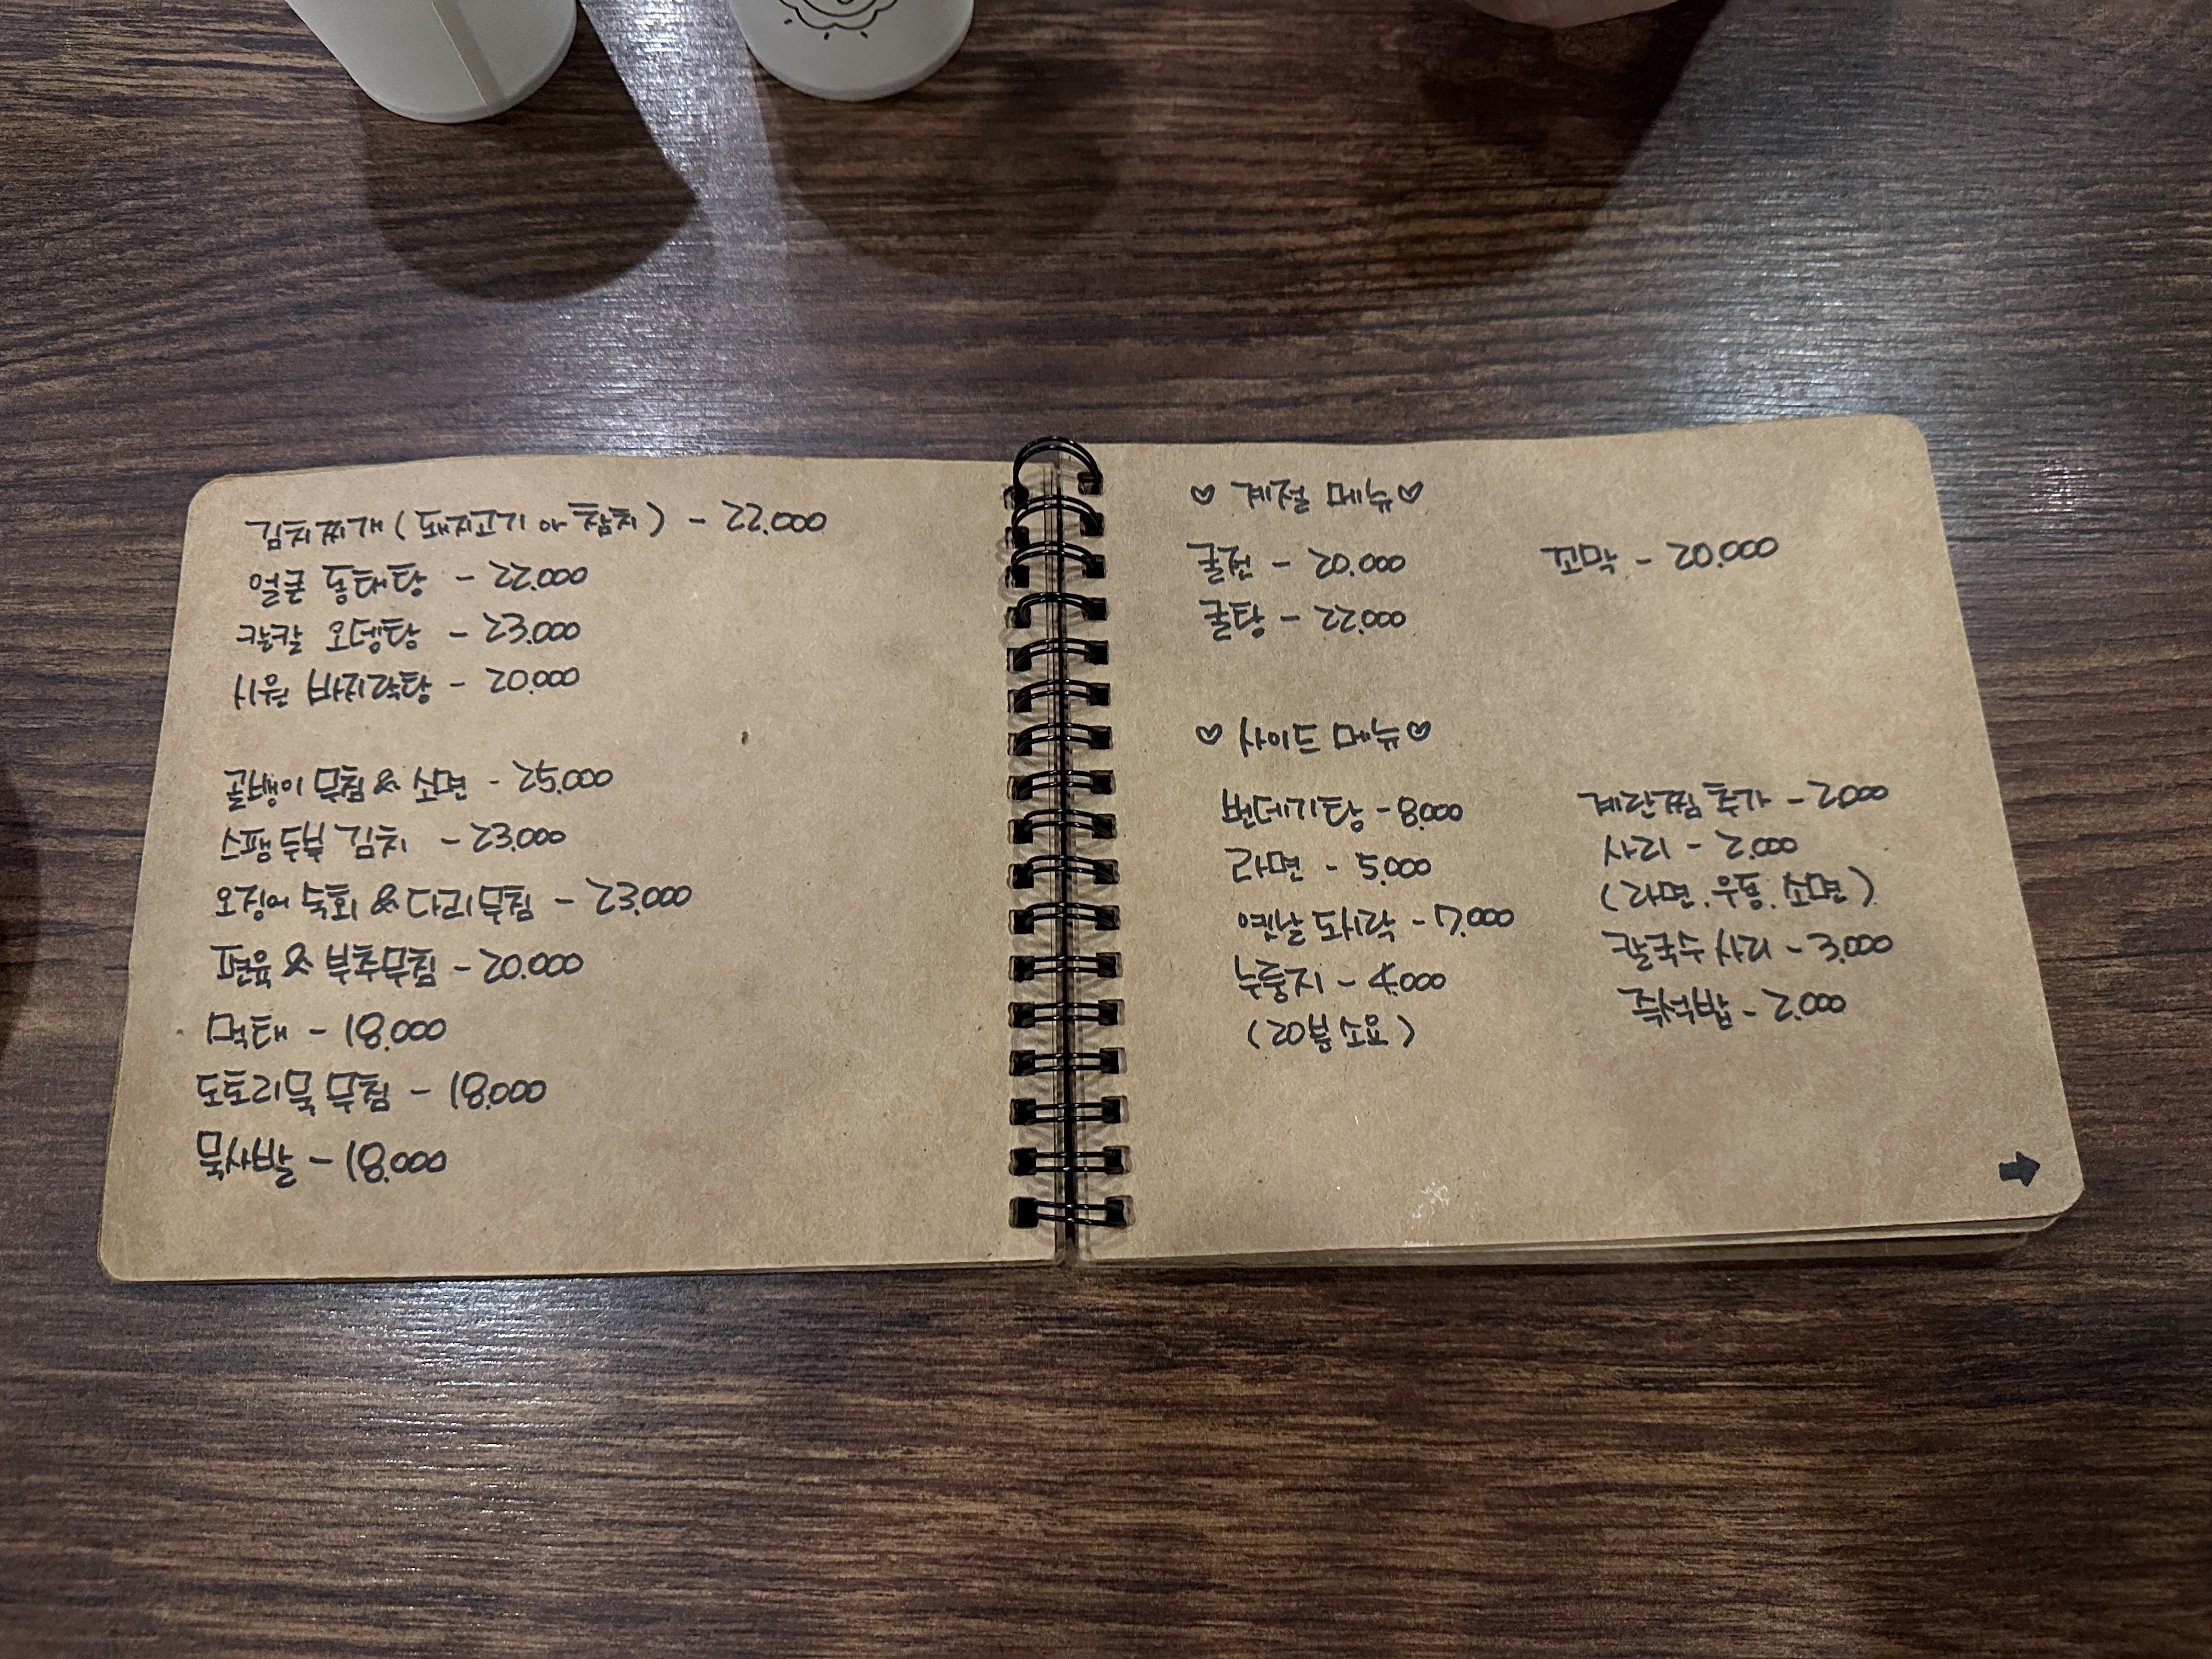 김치찌개 (돼지고기 or 참치) - 22.000
얼큰 동태탕 - 22.000
칼칼 오뎅탕 - 23.000
시원 바지락탕 - 20.000
골뱅이 무침 & 소면 - 25.000
스팸 두부 김치 - 23.000
오징어 숙회 & 다리무침 - 23.000
편육 & 부추무침 - 20.000
먹태 - 18.000
도토리묵 무침 - 18.000
묵사발 - 18.000
♡ 계절 메뉴 ♡
굴전 - 20.000
굴탕 - 22.000
꼬막 - 20.000
♡ 사이드 메뉴 ♡
번데기탕 - 8.000
라면 - 5.000
옛날 도시락 - 7.000
누룽지 - 4.000
(20분 소요)
계란찜 추가 - 2.000
사리 - 2.000
(라면. 우동. 소면)
칼국수 사리 - 3.000
즉석밥 - 2.000